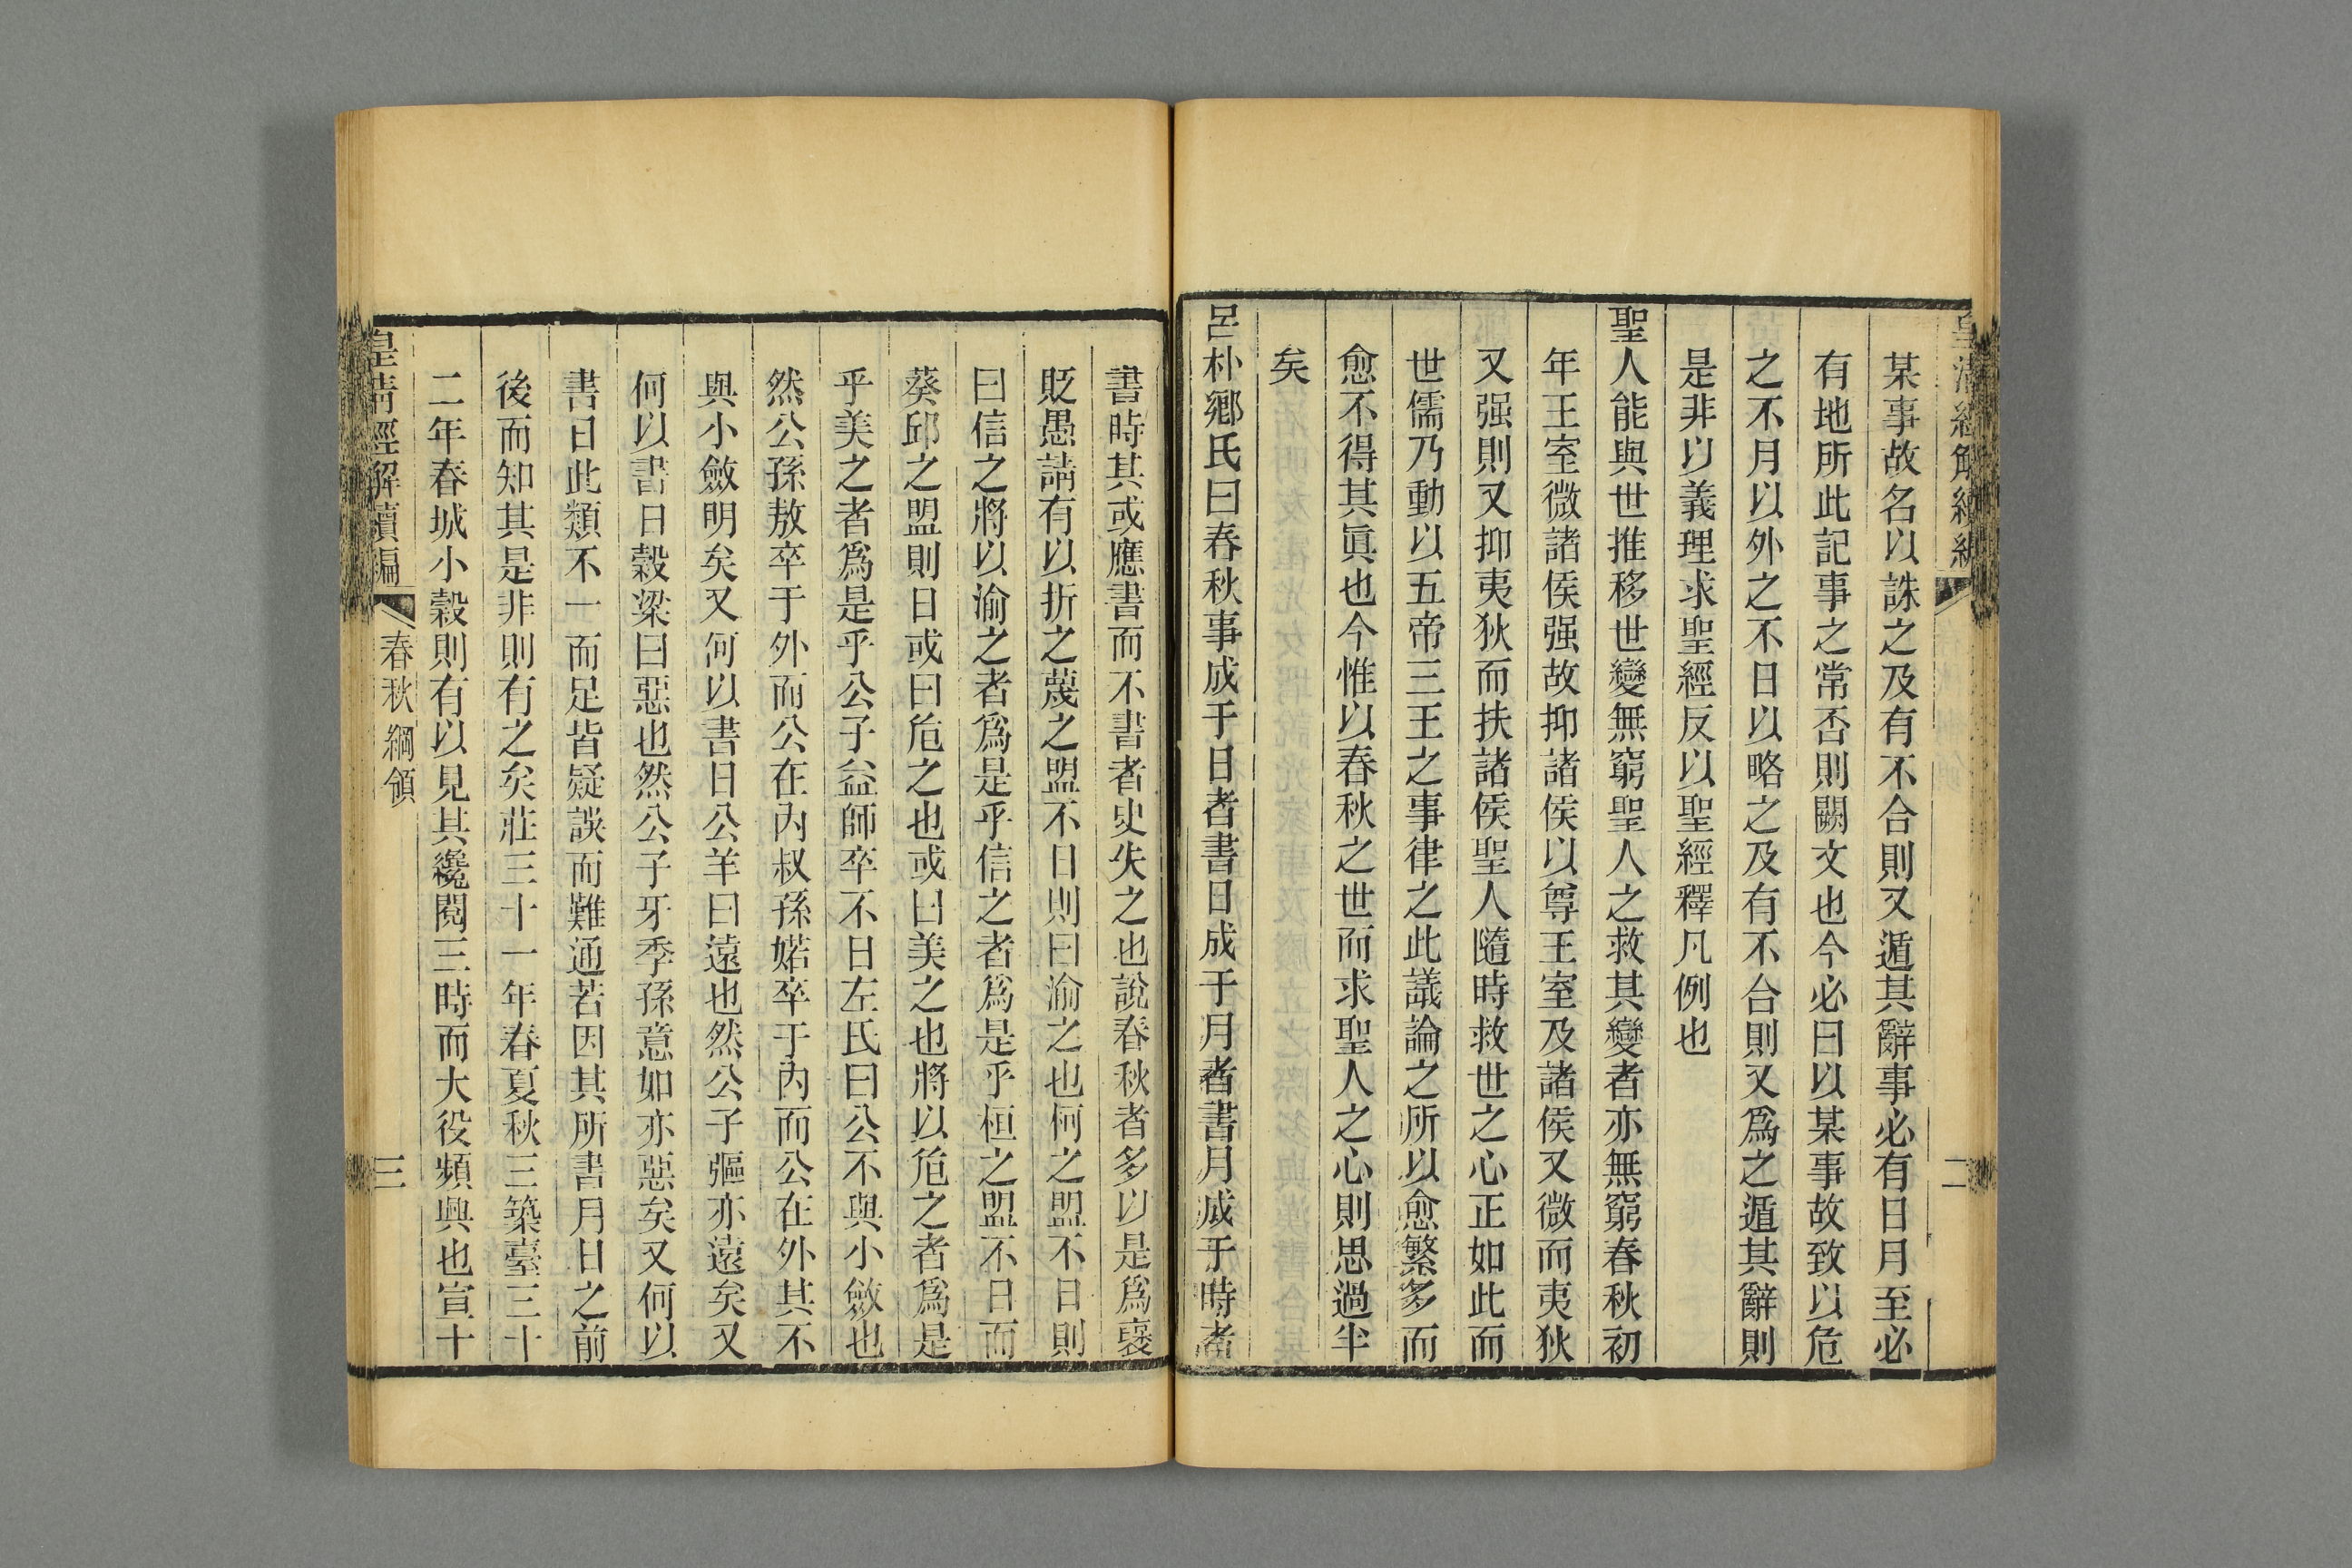 某事故名以誅之及有不合則又遁其辭事必有日月至必
有地所此記事之常否則闕文也今必曰以某事故致以危
之不月以外之不日以略之及有不合則又爲之遁其辭則
是非以義理求聖經反以聖經釋凡例也
聖人能與世推移世變無窮聖人之救其變者亦無窮春秋初
年王室微諸侯强故抑諸侯以尊王室及諸侯又微而夷狄
又强則又抑夷狄而扶諸侯聖人隨時救世之心正如此而
世儒乃動以五帝三王之事律之此議論之所以愈繁多而
愈不得其眞也今惟以春秋之世而求聖人之心則思過半
矣
呂朴鄉氏曰春秋事成于日者書日成于月者書月成于時者
書時其或應書而不書者史失之也說春秋者多以是爲襃
貶愚請有以折之蔑之盟不日則曰渝之也柯之盟不日則
曰信之將以渝之者爲是乎信之者爲是乎桓之盟不日而
葵邱之盟則日或曰危之也或曰美之也將以危之者爲是
乎美之者爲是乎公子益師卒不日左氏曰公不與小斂也
然公孫敖卒于外而公在內叔孫婼卒于內而公在外其不
與小斂明矣又何以書日公羊曰遠也然公子彄亦遠矣又
何以書日穀梁曰惡也然公子牙季孫意如亦惡矣又何以
書日此類不一而足皆疑誤而難通若因其所書月日之前
後而知其是非則有之矣莊三十一年春夏秋三築臺三十
二年春城小穀則有以見其纔閱三時而大役頻興也宣十
皇淸經解續編
春秋綱領
三